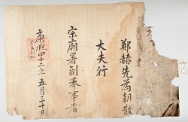 鄭赫先爲朝散
大夫行
宗廟署副奉事者
康熙四十三年五月二十日